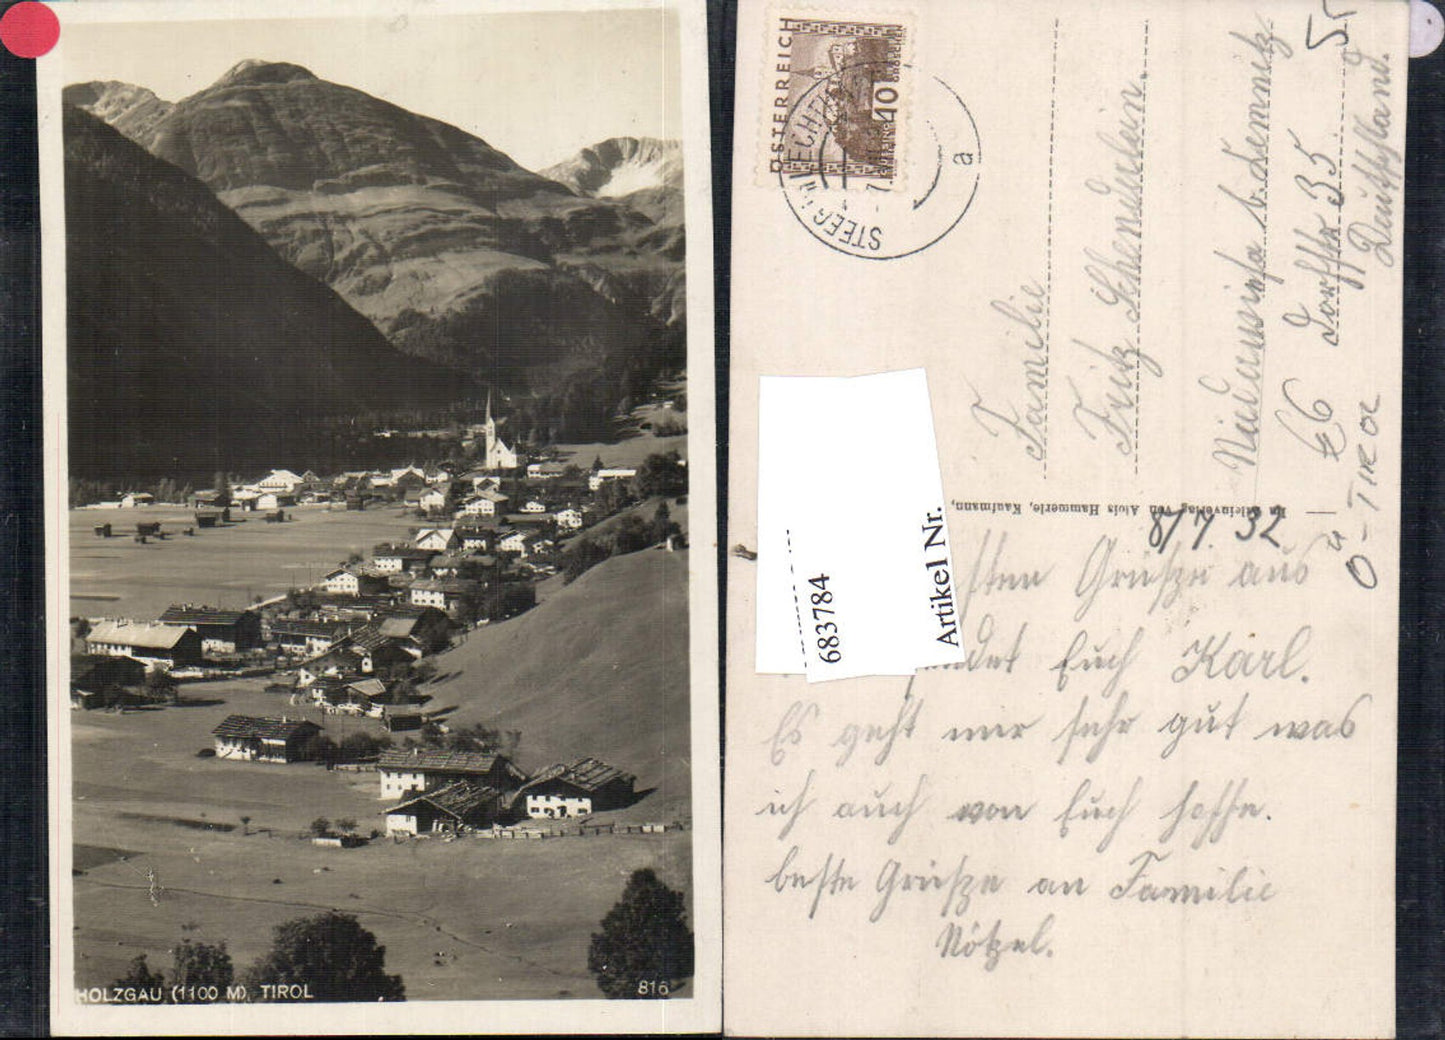 HOLZGAU (1100 M), TIROL
816
ÖSTERREICH
40
STEEG
LECHTAL
a
Familie
Fritz Schendenlein.
b. Lemnitz
E6 Dorfstr 35
Deutschland.
55
Ö-TIROL
Alleinverlag von Alois Hammerle, Kaufmann,
8/7 32
683784
Artikel Nr.
sten Grüsze aus
ndet Euch Karl.
Es geht mir sehr gut was
ich auch von Euch hoffe.
beste Grüsze an Familie
Nötzel.